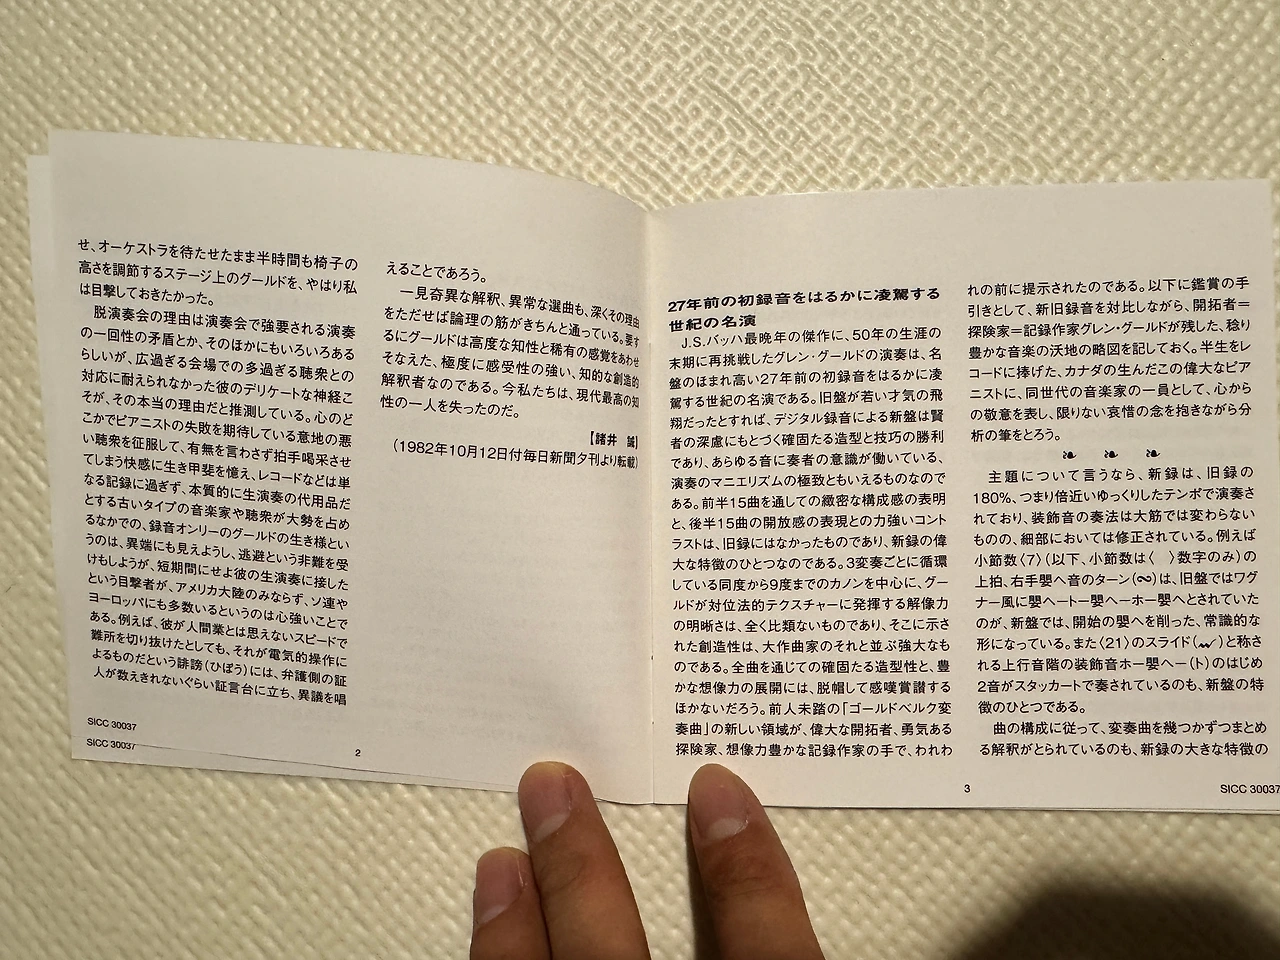 せ、オーケストラを待たせたまま半時間も椅子の
高さを調節するステージ上のグールドを、やはり私
は目撃しておきたかった。
脱演奏会の理由は演奏会で強要される演奏
の一回性の矛盾とか、そのほかにもいろいろある
らしいが、広過ぎる会場での多過ぎる聴衆との
対応に耐えられなかった彼のデリケートな神経こ
そが、その本当の理由だと推測している。心のど
こかでピアニストの失敗を期待している意地の悪
い聴衆を征服して、有無を言わさず拍手喝采させ
てしまう快感に生き甲斐を憶え、レコードなどは単
なる記録に過ぎず、本質的に生演奏の代用品だ
とする古いタイプの音楽家や聴衆が大勢を占め
るなかでの、録音オンリーのグールドの生き様とい
うのは、異端にも見えようし、逃避という非難を受
けもしようが、短期間にせよ彼の生演奏に接した
という目撃者が、アメリカ大陸のみならず、ソ連や
ヨーロッパにも多数いるというのは心強いことで
ある。例えば、彼が人間業とは思えないスピードで
難所を切り抜けたとしても、それが電気的操作に
よるものだという誹謗(ひぼう)には、弁護側の証
人が数えきれないぐらい証言台に立ち、異議を唱
SICC 30037
SICC 30037
2
えることであろう。
一見奇異な解釈、異常な選曲も、深くその理由
をただせば論理の筋がきちんと通っている。要す
るにグールドは高度な知性と稀有の感覚をあわせ
そなえた、極度に感受性の強い、知的な創造的
解釈者なのである。今私たちは、現代最高の知
性の一人を失ったのだ。
【諸井 誠】
(1982年10月12日付毎日新聞夕刊より転載)
27年前の初録音をはるかに凌駕する
世紀の名演
J.S.バッハ最晩年の傑作に、50年の生涯の
末期に再挑戦したグレン・グールドの演奏は、名
盤のほまれ高い27年前の初録音をはるかに凌
駕する世紀の名演である。旧盤が若い才気の飛
翔だったとすれば、デジタル録音による新盤は賢
者の深慮にもとづく確固たる造型と技巧の勝利
であり、あらゆる音に奏者の意識が働いている、
演奏のマニエリスムの極致ともいえるものなので
ある。前半15曲を通しての緻密な構成感の表明
と、後半15曲の開放感の表現との力強いコント
ラストは、旧録にはなかったものであり、新録の偉
大な特徴のひとつなのである。3変奏ごとに循環
している同度から9度までのカノンを中心に、グー
ルドが対位法的テクスチャーに発揮する解像力
の明晰さは、全く比類ないものであり、そこに示さ
れた創造性は、大作曲家のそれと並ぶ強大なも
のである。全曲を通じての確固たる造型性と、豊
かな想像力の展開には、脱帽して感嘆賞讃する
ほかないだろう。前人未踏の「ゴールドベルク変
奏曲」の新しい領域が、偉大な開拓者、勇気ある
探険家、想像力豊かな記録作家の手で、われわ
れの前に提示されたのである。以下に鑑賞の手
引きとして、新旧録音を対比しながら、開拓者＝
探険家＝記録作家グレン・グールドが残した、稔り
豊かな音楽の沃地の略図を記しておく。半生をレ
コードに捧げた、カナダの生んだこの偉大なピア
ニストに、同世代の音楽家の一員として、心から
の敬意を表し、限りない哀惜の念を抱きながら分
析の筆をとろう。
主題について言うなら、新録は、旧録の
180%、つまり倍近いゆっくりしたテンポで演奏さ
れており、装飾音の奏法は大筋では変わらない
ものの、細部においては修正されている。例えば
小節数〈7〉(以下、小節数は〈 〉数字のみ)の
上拍、右手嬰ヘ音のターン(∞)は、旧盤ではワグ
ナー風に嬰ヘート一嬰ヘーホー嬰ヘとされていた
のが、新盤では、開始の嬰ヘを削った、常識的な
形になっている。また〈21〉のスライド( )と称さ
れる上行音階の装飾音ホー嬰ヘー(ト)のはじめ
2音がスタッカートで奏されているのも、新盤の特
徴のひとつである。
曲の構成に従って、変奏曲を幾つかずつまとめ
る解釈がとられているのも、新録の大きな特徴の
3
SICC 30037